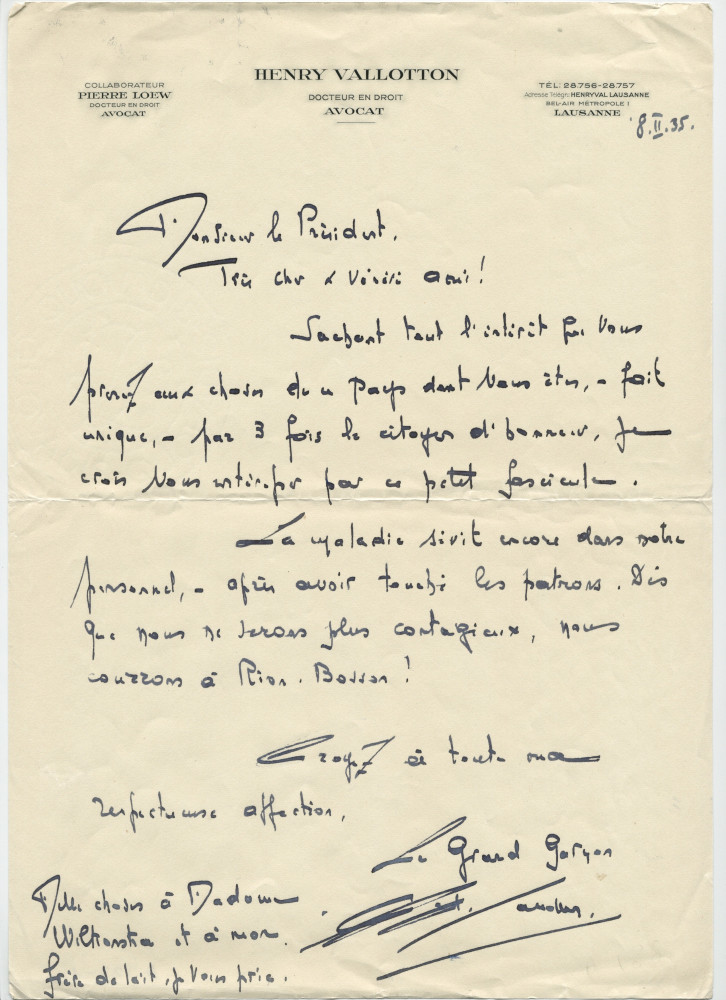 COLLABORATEUR
PIERRE LOEW
DOCTEUR EN DROIT
AVOCAT
HENRY VALLOTTON
DOCTEUR EN DROIT
AVOCAT
TÉL. 28.756-28.757
Adresse Télégr: HENRYVAL LAUSANNE
BEL-AIR MÉTROPOLE 1
LAUSANNE
8.II.35.
Monsieur le Président,
Très cher & vénéré ami!
Sachant tout l'intérêt que Vous
prenez aux choses de ce pays dont Vous êtes, - fait
unique, - par 3 fois le citoyen d'honneur, je
crois Vous intéresser par ce petit fascicule.
La maladie sévit encore dans notre
personnel, - après avoir touché les patrons. Dès
que nous ne serons plus contagieux, nous
courrons à Rion-Bosson!
Croyez à toute ma
respectueuse affection,
Le Grand Garçon
Mille choses à Madame
et à mon
frère de lait, je Vous prie.